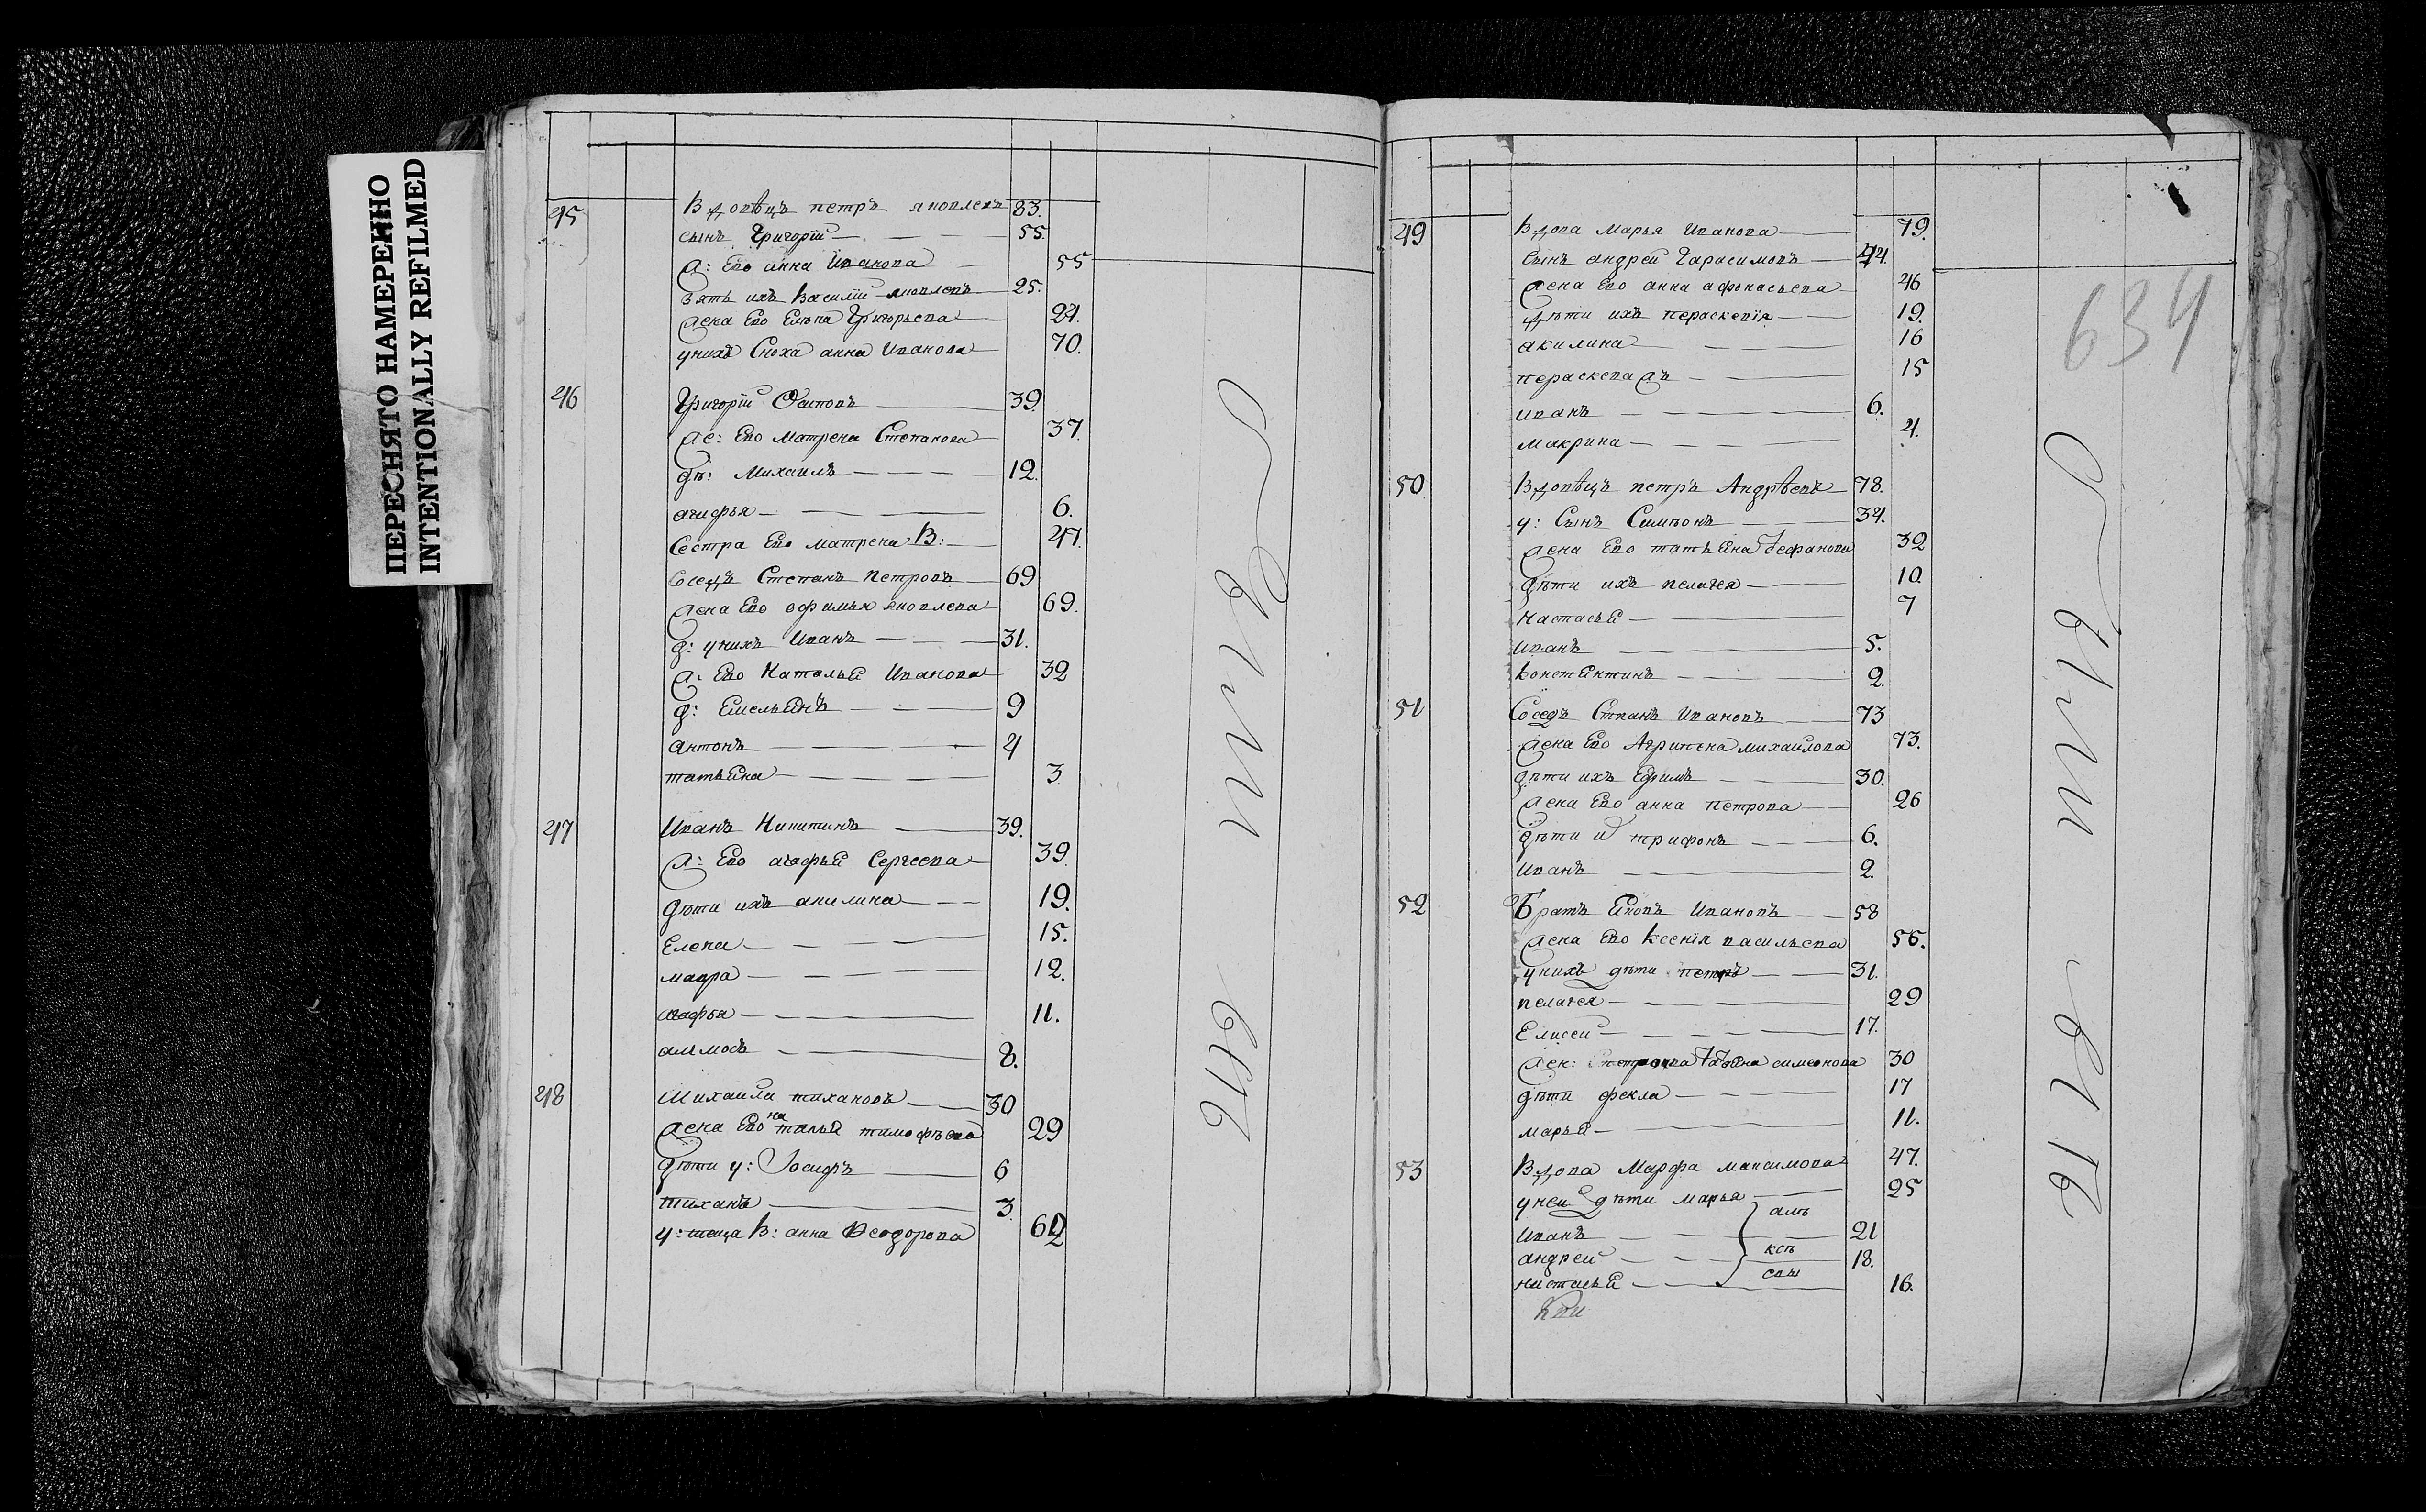 ПЕРЕСНЯТО НАМЕРЕННО
INTENTIONALLY REFILMED
45 Вдовѣцъ петръ яковлевъ 83.
сынъ Григорїй 55.
ж: Ево анна Иванова 55
зять ихъ Василїй яковлевъ 25.
жена Ево Елѣна Григорьева 24.
унихъ Сноха анна Иванова 70.
46 Григорїй Осиповъ 39.
же: Ево Матрена Степанова 37.
дѣ: Михаилъ 12.
агафья 6.
Сестра Ево матрена В: 47.
Соседъ Степанъ Петровъ 69
жена Ево офимья яковлева 69.
д: унихъ Иванъ 31.
ж: Ево Наталья Иванова 32
д: Емельянъ 9
антонъ 4
татьяна 3.
47 Иванъ Никитинъ 39.
ж: Ево агафья Сергеева 39.
дѣти ихъ акилина 19.
Елена 15.
мавра 12.
агафья 11.
8.
48 Михаила тихановъ 30
жена Ево наталья тимофѣева 29
дѣти у: Іосифъ 6
тиханъ 3.
у: теща В: анна Ѳеодорова 62
Были
вси
634
49 Вдова Марья Иванова 79.
Сынъ андрей Гарасимовъ 44.
жена Ево анна афонасьева 46
дѣти ихъ перасковїя 19.
акилина 16
15
иванъ 6.
макрина 4.
50 Вдовѣцъ петръ Андрѣевъ 78.
у: Сынъ Симѣонъ 34.
жена Ево татьяна Стефанова 32
дѣти ихъ пелагея 10.
настасья 7
иванъ 5.
констянтинъ 2.
51 Соседъ Степанъ Ивановъ 73
жена Ево Агрипена михайлова 73.
дѣти ихъ Ефимъ 30.
жена Ево анна петрова 26
дѣти и трифонъ 6.
иванъ 2.
52 Братъ Яковъ Ивановъ 58
жена Ево ксенїя васильева 56.
унихъ дѣти петръ 31.
пелагея 29
Елисей 17.
жен: петрова татьяна симеонова 30
дѣти фекла 17
марья 11.
53 Вдова Марфа максимова 47.
уней дѣти марья 25
иванъ 21
андрей 18.
настасья 16.
Были
вси